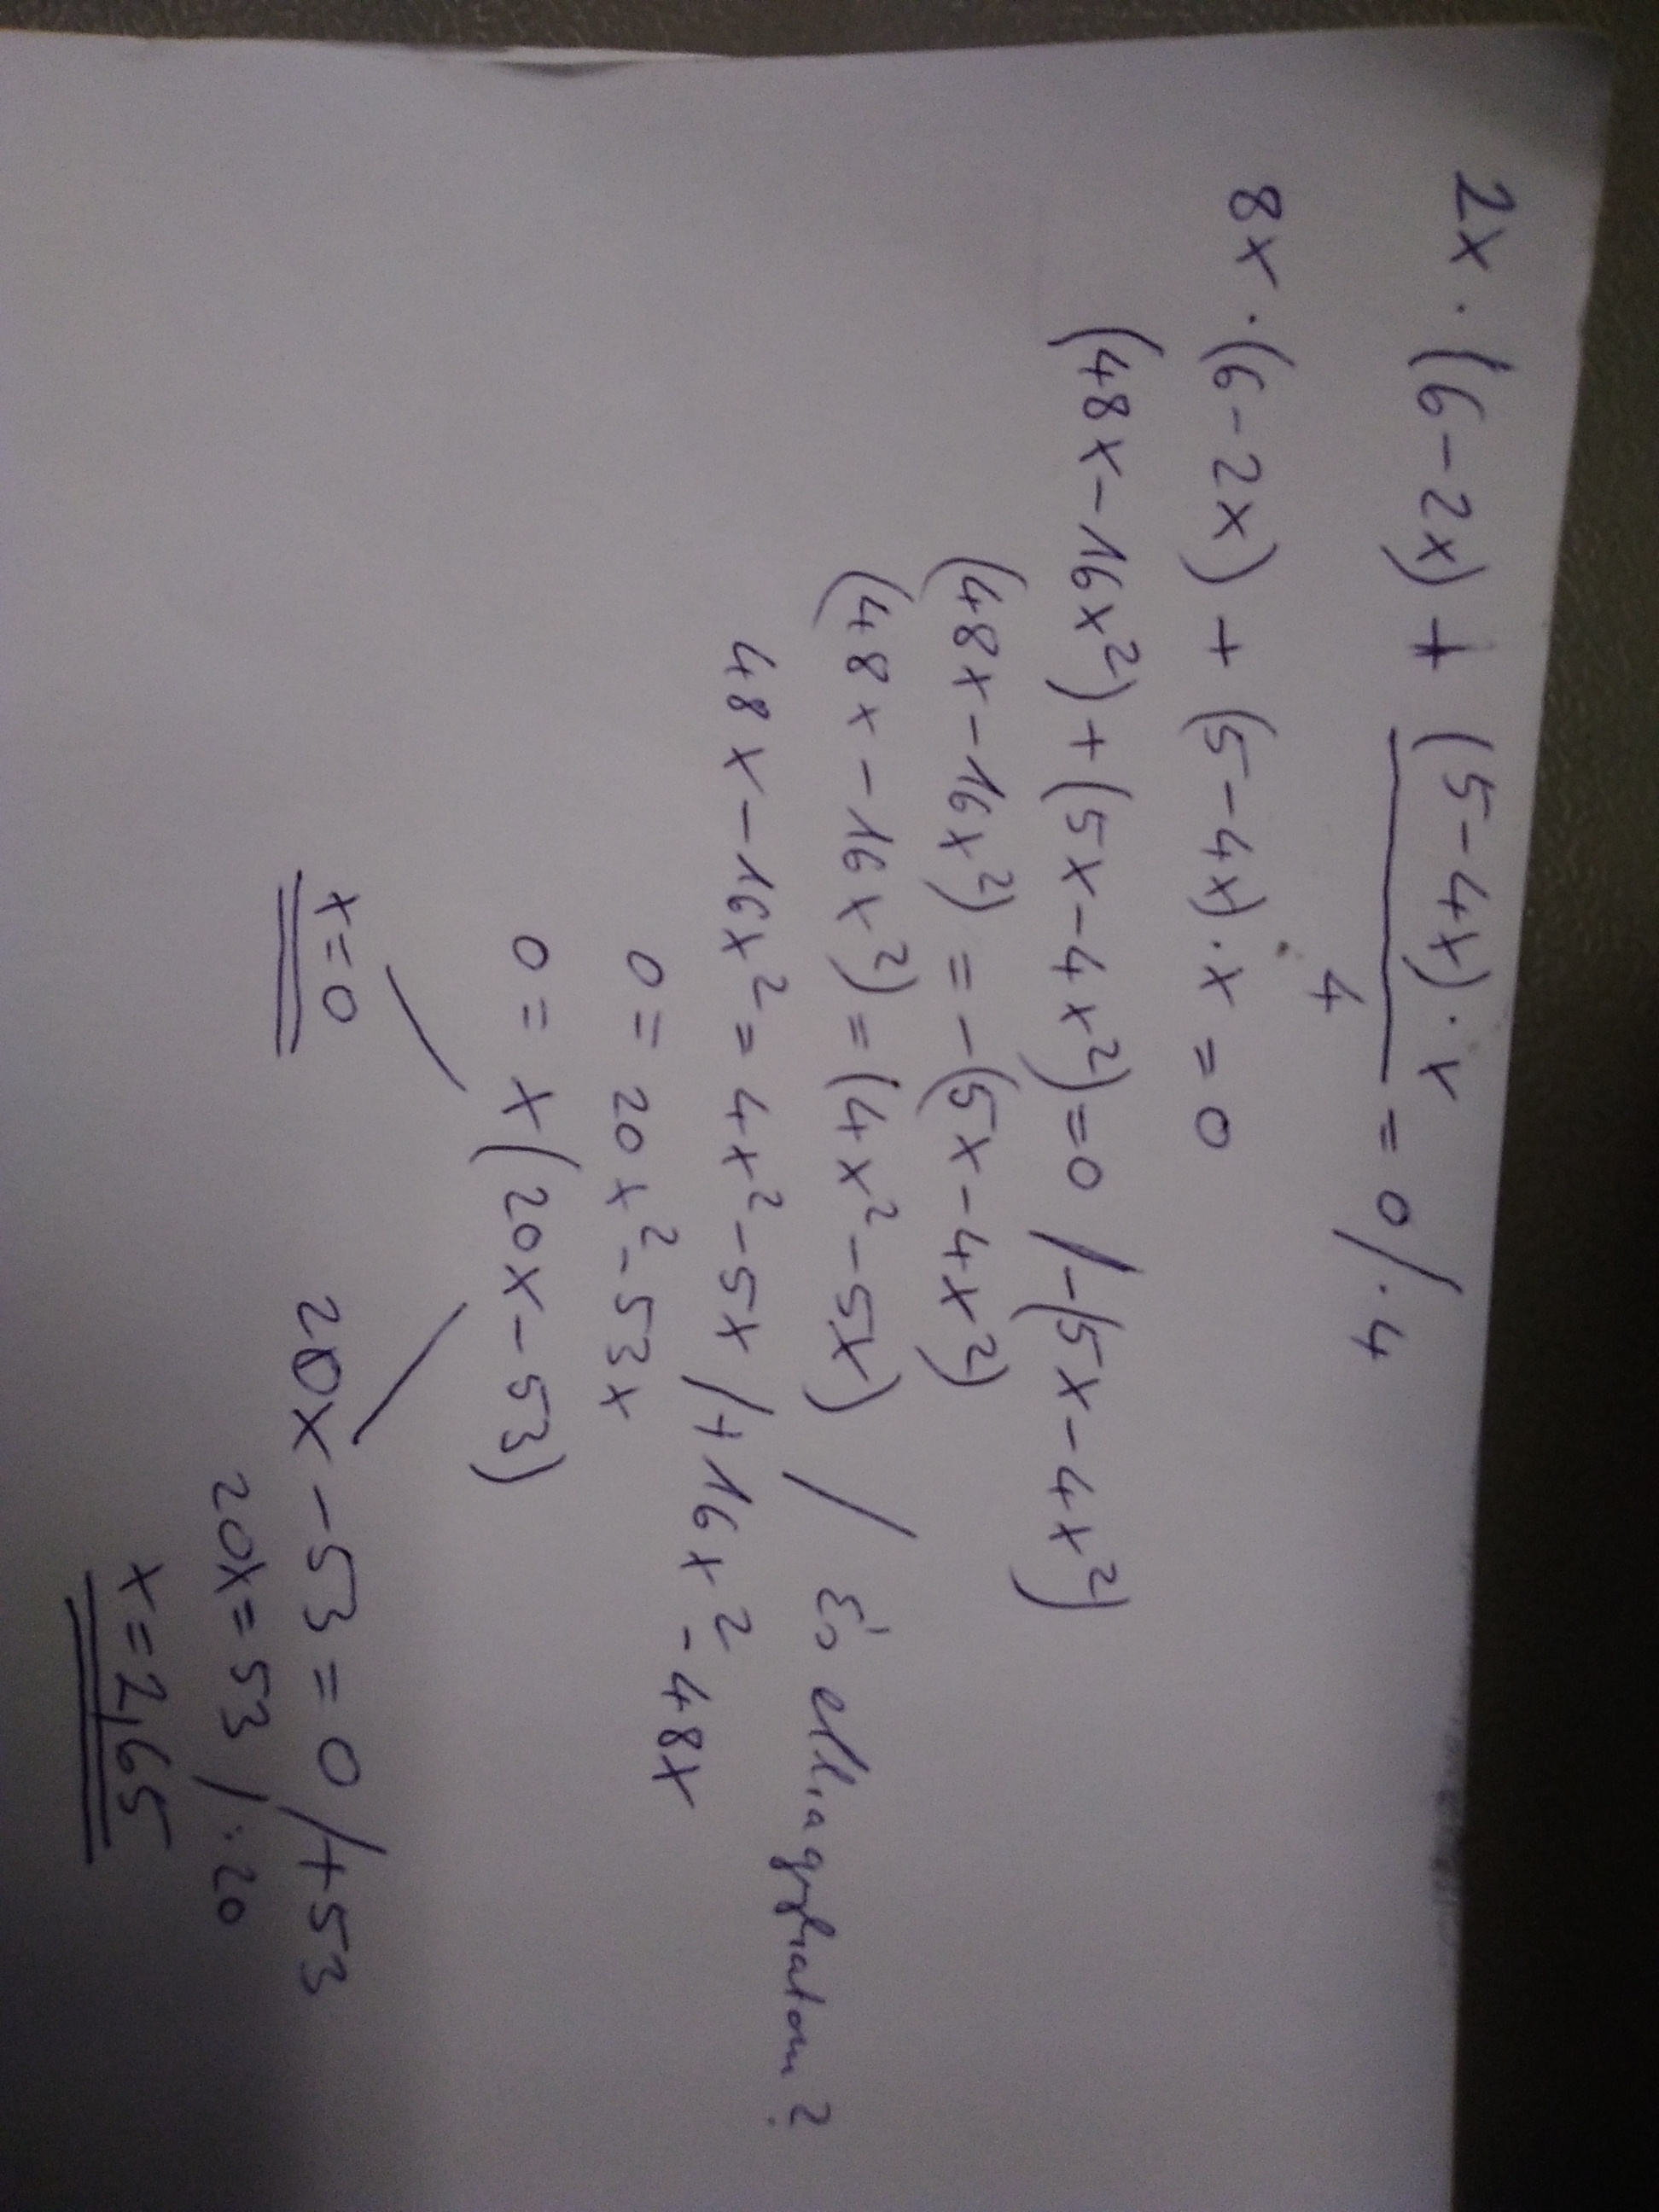 2x · (6-2x) + (5-4x)·x / 4 = 0 /·4
8x · (6-2x) + (5-4x)·x = 0
(48x-16x²)+(5x-4x²)=0 /-(5x-4x²)
(48x-16x²) = -(5x-4x²)
(48x-16x²)=(4x²-5x) / És elhagyhatom?
48x-16x²=4x²-5x /+16x²-48x
0 = 20x²-53x
0 = x(20x-53)
x=0
20x-53=0 /+53
20x=53 /:20
x=2,65